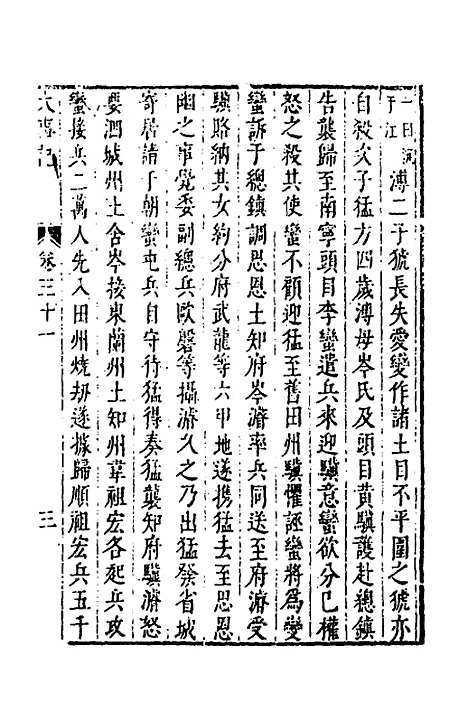 一曰河于江溥二子猇長失愛變作諸土目不平圍之猇亦
自殺次子猛方四歲溥母岑氏及頭目黃驥護赴總鎮
告襲歸至南寧頭目李蠻遣兵來迎驥意蠻欲分己權
怒之殺其使蠻不顧迎猛至舊田州驥懼誣蠻將爲變
蠻訴于總鎮調思恩土知府岑濬率兵同送至府濬受
驥賂納其女約分府武龍等六甲地遂携猛去至思恩
幽之事覺委副總兵歐磐等攝濬久之乃出猛發省城
寄居請于朝蠻屯兵自守待猛得奏猛襲知府驥濬怒
要泗城州土舍岑接東蘭州土知州韋祖宏各起兵攻
蠻接兵二萬人先入田州燒刼遂據歸順祖宏兵五千
卷三十一
三